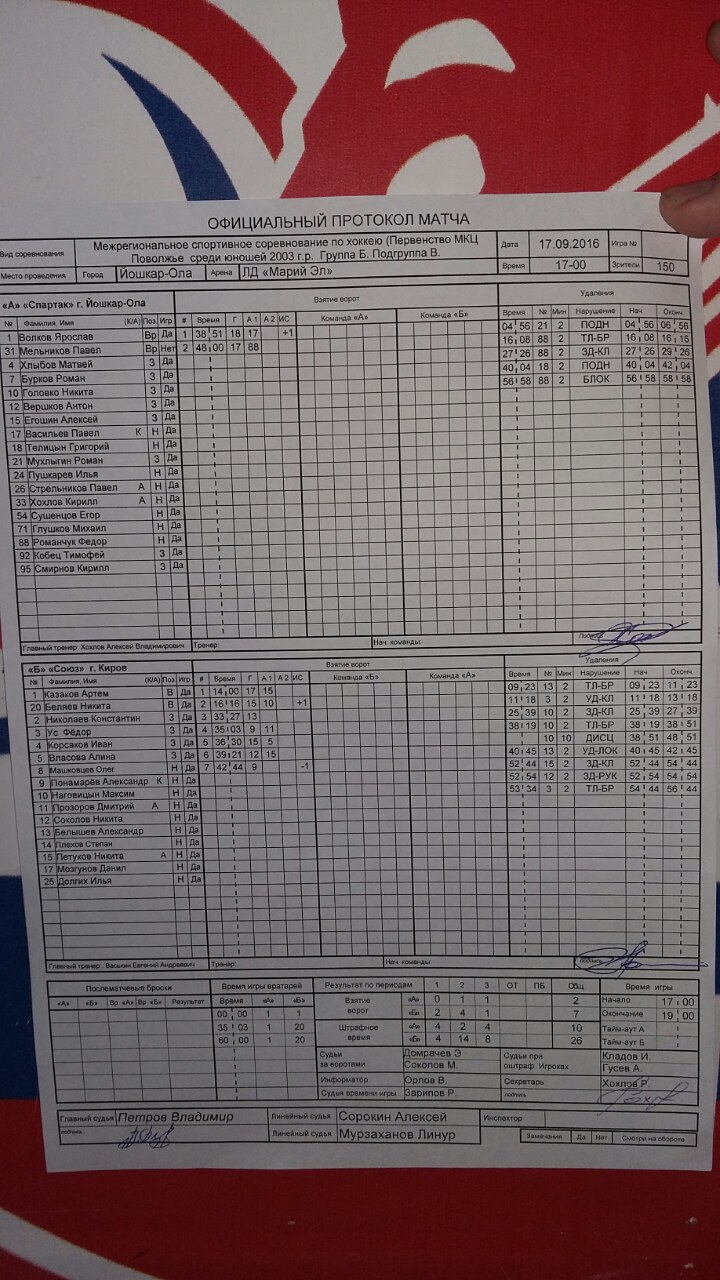 ОФИЦИАЛЬНЫЙ ПРОТОКОЛ МАТЧА
Вид соревнования Межрегиональное спортивное соревнование по хоккею (Первенство МКЦ Поволжье среди юношей 2003 г.р. Группа Б. Подгруппа В. Дата 17.09.2016 Игра №
Место проведения Город Йошкар-Ола Арена ЛД «Марий Эл» Время 17-00 Зрители 150
«А» «Спартак» г. Йошкар-Ола Взятие ворот Удаления
№ Фамилия, Имя (К/А) Поз Игр # Время Г А 1 А 2 ИС Команда «А» Команда «Б» Время № Мин Нарушение Нач. Оконч
1 Волков Ярослав Вр Да 1 38 51 18 17 +1 04 56 21 2 ПОДН 04 56 06 56
31 Мельников Павел Вр Нет 2 48 00 17 88 16 08 88 2 ТЛ-БР 16 08 16 16
4 Хлыбов Матвей З Да 27 26 88 2 ЗД-КЛ 27 26 29 26
7 Бурков Роман З Да 40 04 18 2 ПОДН 40 04 42 04
10 Головко Никита З Да 56 58 88 2 БЛОК 56 58 58 58
12 Вершков Антон З Да
15 Егошин Алексей З Да
17 Васильев Павел К Н Да
18 Телицын Григорий Н Да
21 Мухлыгин Роман З Да
24 Пушкарев Илья Н Да
26 Стрельников Павел А Н Да
33 Хохлов Кирилл А Н Да
54 Сушенцов Егор Н Да
71 Глушков Михаил Н Да
88 Романчук Федор Н Да
92 Кобец Тимофей З Да
95 Смирнов Кирилл З Да
Главный тренер: Хохлов Алексей Владимирович Тренер: Нач. команды: Подпись
«Б» «Союз» г. Киров Взятие ворот Удаления
№ Фамилия, Имя (К/А) Поз Игр # Время Г А 1 А 2 ИС Команда «Б» Команда «А» Время № Мин Нарушение Нач Оконч
1 Казаков Артем В Да 1 14 00 17 15 09 23 13 2 ТЛ-БР 09 23 11 23
20 Беляев Никита В Да 2 16 16 15 10 +1 11 18 3 2 УД-КЛ 11 18 13 18
2 Николаев Константин З Да 3 33 27 13 25 39 10 2 ЗД-КЛ 25 39 27 39
3 Ус Фёдор З Да 4 35 03 9 11 38 19 10 2 ТЛ-БР 38 19 38 51
4 Корсаков Иван З Да 5 36 30 15 5 10 10 ДИСЦ 38 51 48 51
5 Власова Алина З Да 6 39 21 12 15 40 45 13 2 УД-ЛОК 40 45 42 45
8 Машковцев Олег Н Да 7 42 44 9 -1 52 44 15 2 ЗД-КЛ 52 44 54 44
9 Понамарёв Александр К Н Да 52 54 12 2 ЗД-РУК 52 54 54 54
10 Наговицын Максим Н Да 53 34 3 2 ТЛ-БР 54 44 56 44
11 Прозоров Дмитрий А Н Да
12 Соколов Никита Н Да
13 Белышев Александр Н Да
14 Плохов Степан Н Да
15 Петухов Никита А Н Да
17 Мозгунов Данил Н Да
25 Долгих Илья Н Да
Главный тренер: Васькин Евгений Андреевич Тренер: Нач. команды: подпись
Послематчевые броски Время игры вратарей Результат по периодам 1 2 3 ОТ ПБ Общ Время игры
«А» «Б» Вр «А» Вр «Б» Результат Время «А» «Б» Взятие ворот «А» 0 1 1 2 Начало 17 00
00 00 1 1 «Б» 2 4 1 7 Окончание 19 00
35 03 1 20 Штрафное время «А» 4 2 4 10 Тайм-аут А
60 00 1 20 «Б» 4 14 8 26 Тайм-аут Б
Судьи за воротами Домрачев Э Судьи при оштраф. Игроках Кладов И
Соколов М. Гусев А.
Информатор Орлов В. Секретарь Хохлов Р.
Судья времени игры Зарипов Р. подпись
Главный судья Петров Владимир Линейный судья Сорокин Алексей Инспектор
подпись Линейный судья Мурзаханов Линур Замечания Да Нет Смотри на обороте